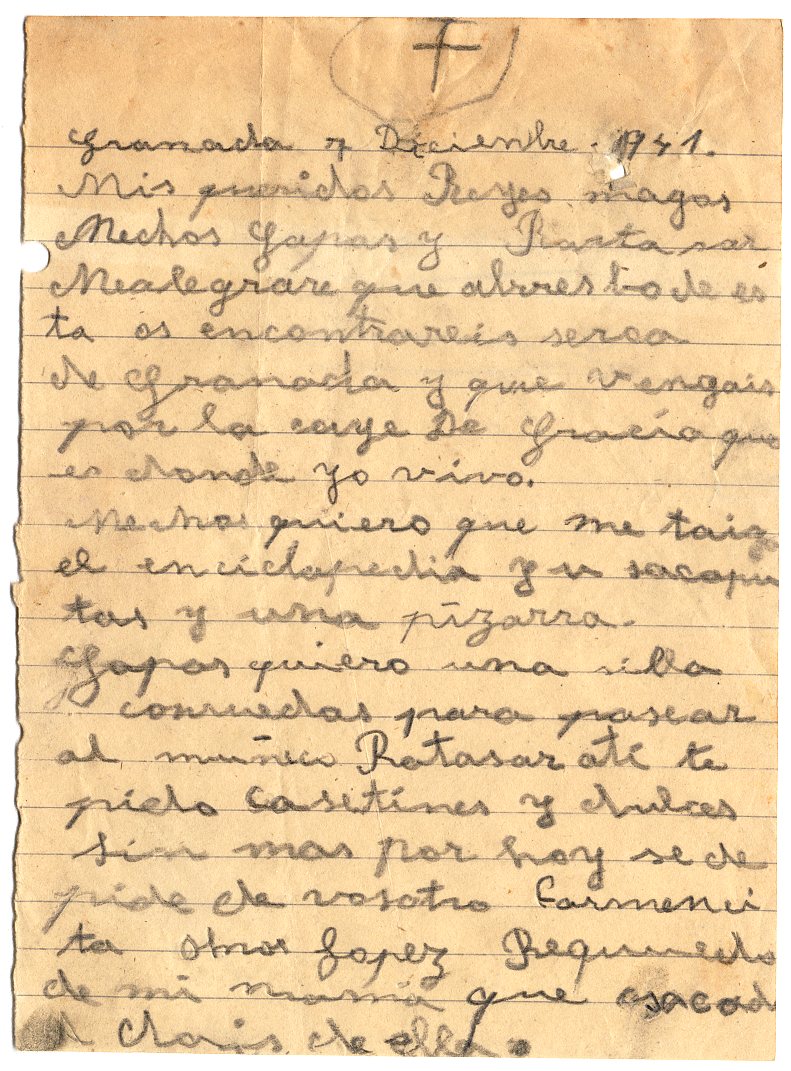 Granada 7 Diciembre. 1941.
Mis queridos Reyes magos
Mechos Gapas y Barta sar
Mealegrare que alrresbo de es
ta os encontrareis serca
de Granada y que vengais
por la caye De Gracia que
es donde yo vivo.
Mechos quiero que me taig
el enciclopedia y u sacapu
tas y una pizarra.
Gapas quiero una silla
conruedas para pasear
al muñeco Batasar ati te
pido Casetines y dulces
Sin mas por hoy se de
pide de vosotro Carmenci
ta Gopez
de mi mama que
de ella.